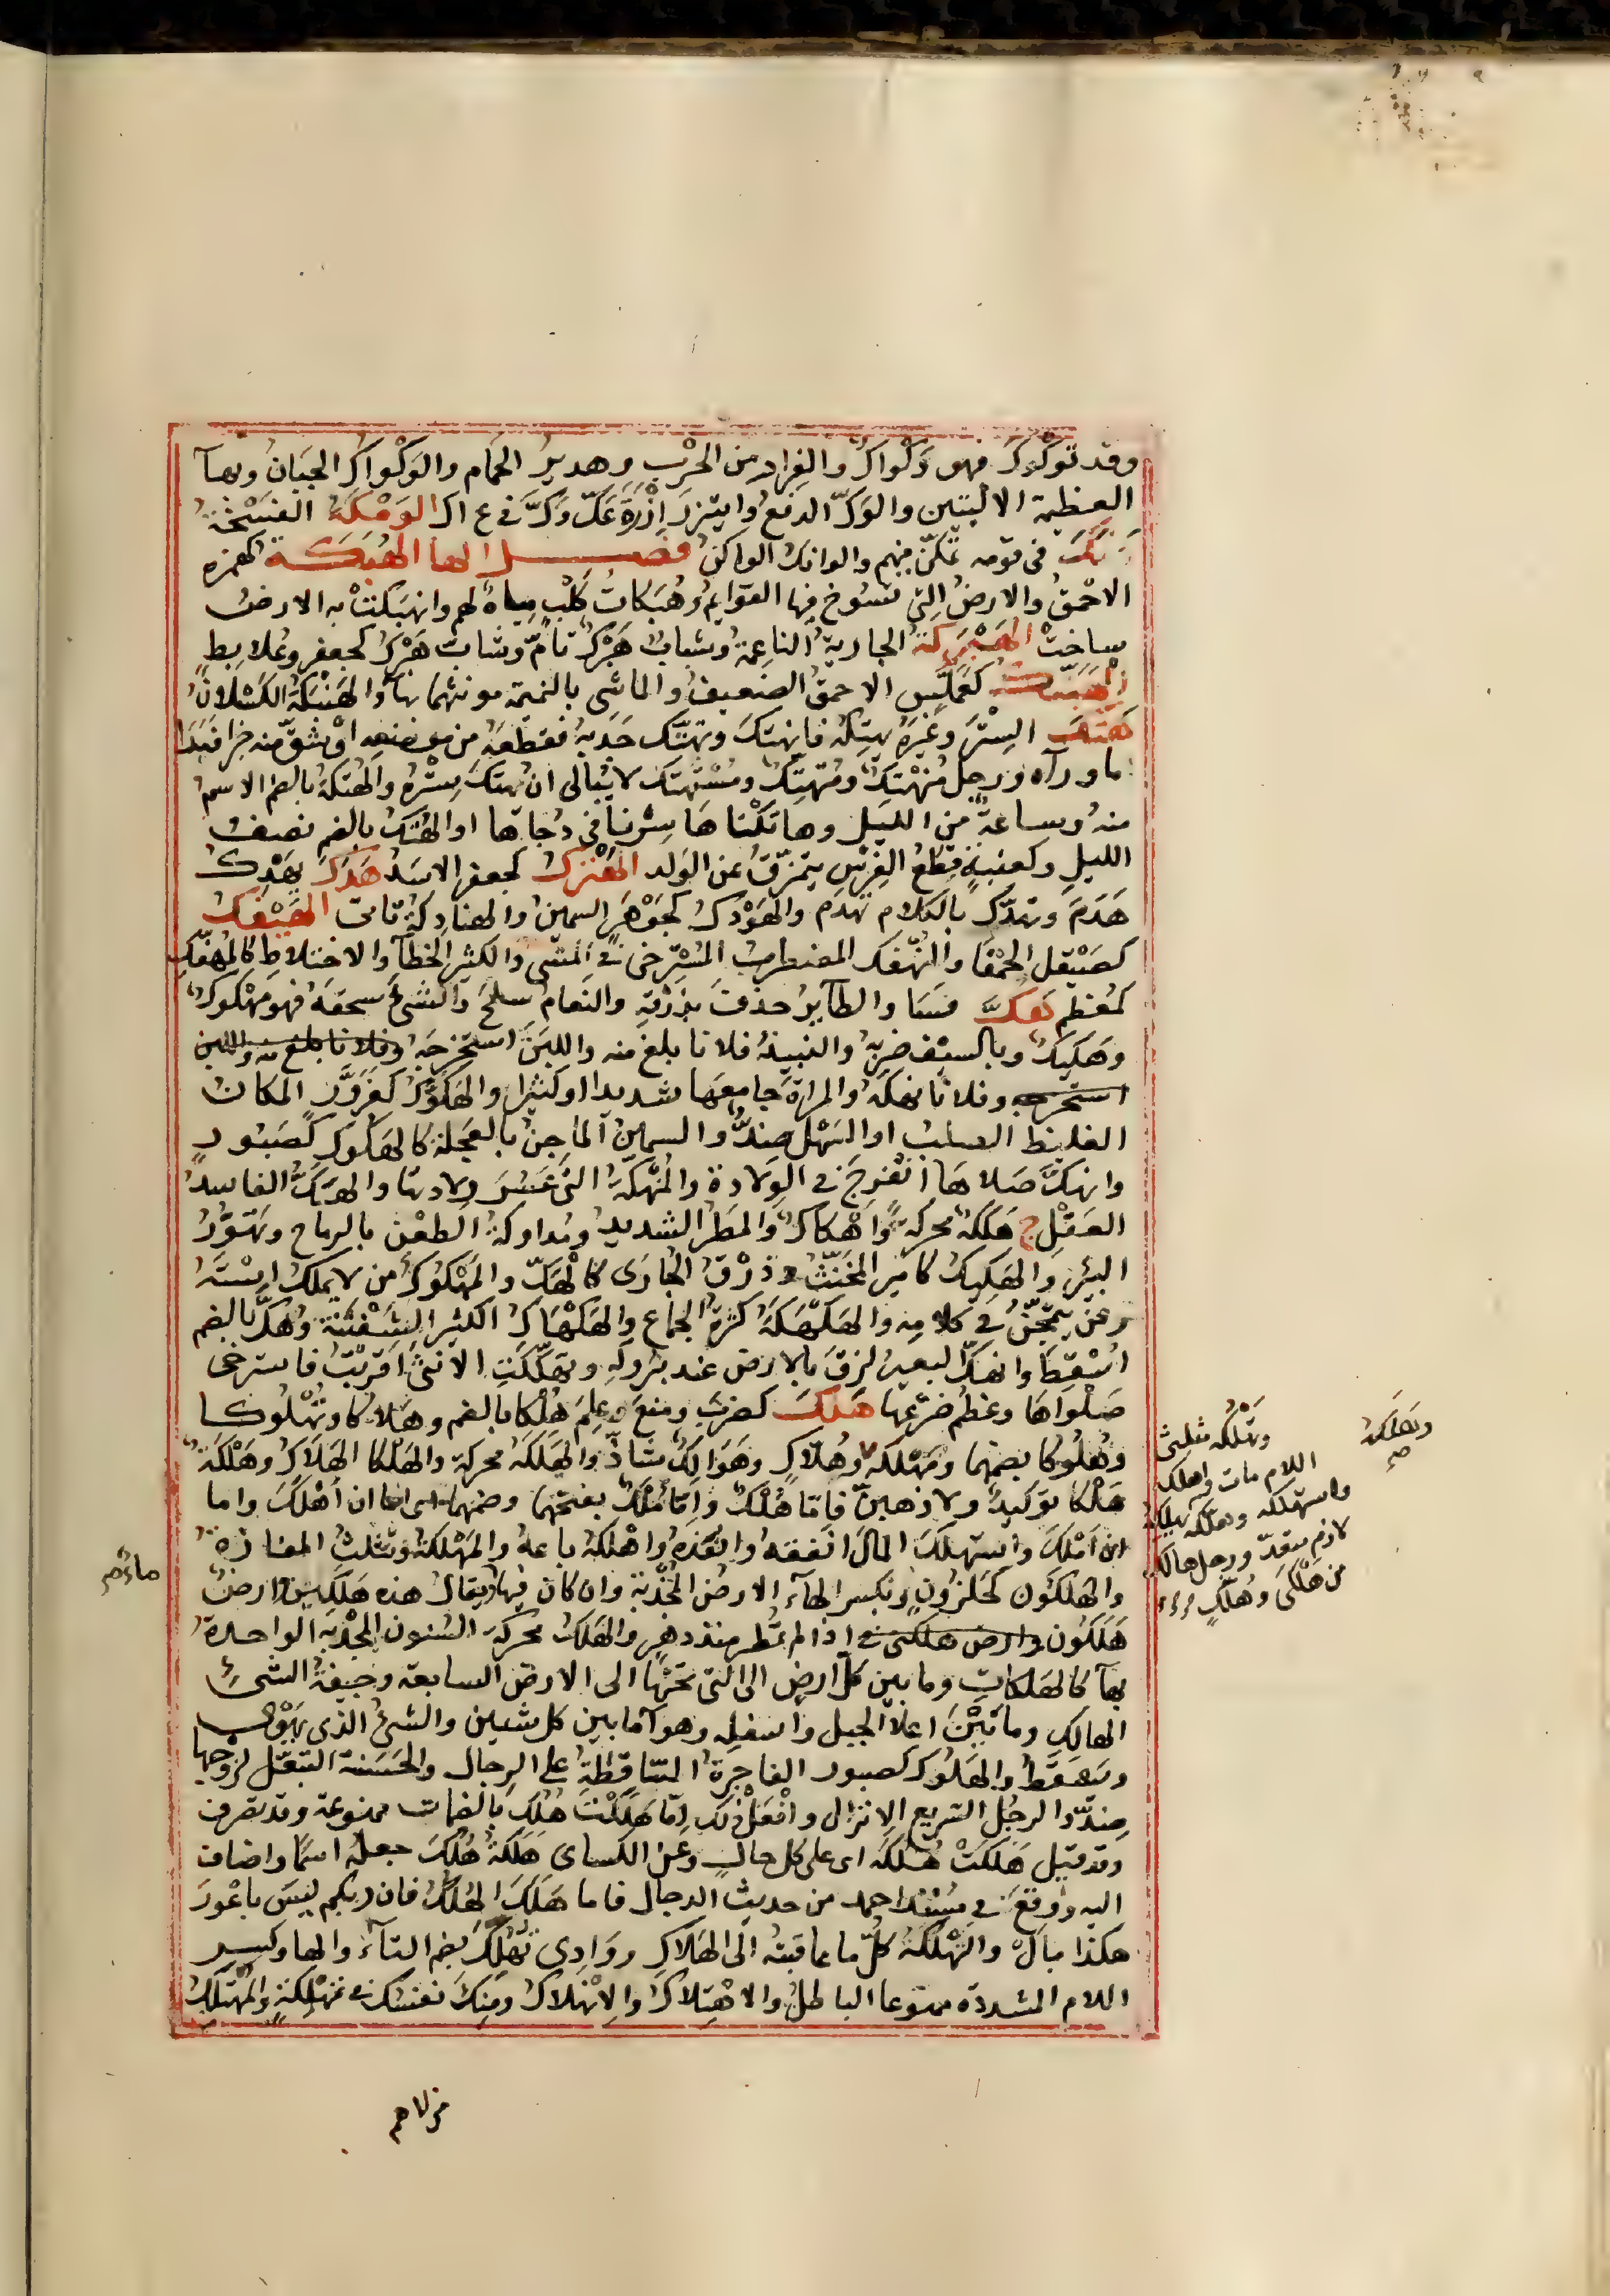 وقد تَوَكْوَكَ فهو وَكْوَاكٌ والفِرار من الحَرْبِ وهديرُ الحَمام والوَكْوَاكُ الجَبَانُ وبهآ
العظيمة الاليتين والوَكّ الدفعُ وايتزرَ اِزْرَةَ عَكَّ وَكَّ في ع ك ك الوَمْكَةُ الفُسْحَةُ
وَنَكَ في قومه تمكّن فيهم والوانك الواكنُ فصل الها الهُبَكَة كهُمزة
الاحْمقُ والارضُ التي تسُوخ فيها القوايمُ وهُبَكَاتُ كَلْبٍ مِيَاهٌ لهم وانهبكتْ به الارضُ
ساخَتْ الهَبْرَكَةُ الجاريةُ الناعمة وشبابٌ هَبْرَكٌ تامٌّ وشابٌّ هَبْركٌ كجعفر وعُلابِطٍ
الهَبَنَّكُ كعَمَلَّسٍ الاحمقُ الضعيفُ والماشى بالنميمة مونثهما بهآ والهَنْبَكَةُ الكَسْلانُ
هَتَكَ السِتْرَ وغيرَه يهتِكُه فانهتكَ وتهتَّك جَذَبهُ فقطعهُ من موضعه اوْ شقّ منه جزا فبَدَا
ما ورآه ورجل مُنْهَتِكٌ ومُتهتِّكٌ ومُسْتَهتك لا يُبالى ان يُهتكَ سِتْرُه والهُتكَةُ بالضم الاسمُ
منه وساعةٌ من الليل وهاتَكْناهَا سِرْنا في دُجاتها او الهُتْكُ بالضم نصفُ
الليلِ وكعِنبٍ قِطَعُ الغِرْسِ يتمزّقُ عن الولد الهَزْنَكُ كجعفر الاسَدُ هَدَكَ يهْدِكُ
هَدَمَ وتهدّك بالكلام تهدّم والهَوْدكُ كجَوْهَر السمينُ والهنادِكةُ تاتى الهَيْفَكُ
كصَيْقل الحَمْقا والتهفّك المضطربُ المُسْترخى في المشى والكثيرُ الخَطآِ والاختلاطِ كالمُهَفَّكِ
كمُعَظم هَكَّ فَسَا والطآيرُ حذفَ بذَرْقِهِ والنعامُ سلحَ والشىءَ سحقَهُ فهو مهْكوكٌ
وهَكِيكٌ وبالسيف ضربَهُ والنبيذُ فلانا بلغ منه واللبَنَ استخرجَه وفلانا بلغ منه واللبن
استخرجه وفلانا نهكَهُ والمراةَ جامعَها شديدا او كثيرا والهَكَوَّكُ كغَزَوَّر المكانُ
الغليظ الصلبُ او السَّهْلُ ضِدٌّ والسمينُ الماجِنُ بالعَجَلة كالهَكوكِ كصَبُورٍ
وانهكَّ صَلاهَا انْفرجَ في الولادة والمُنْهَكّةُ التى عَسُرَ ولادتها والهَكُّ الفاسدُ
العَقْلِ ج هَكَكَةٌ محركةً واَهْكاكٌ والمَطَرُ الشديد ومُداركةُ الطعْنِ بالرماح وتهوُّرُ
البئرِ والهَكيكُ كاميرٍ المخنّثُ وذَرْقُ الحُبارَى كالهَكّ والمَهْكُوكُ من لا يملك اِسْتَهُ
ومَنْ يتمجّنُ في كلامِهِ والهَكْهَكَةُ كثرةُ الجِماعِ والهَكْهَاكُ الكثير الشَفْتَنَة وهُكَّ بالضم
اُسْقِطَ وانهكَّ البعيرُ لزقَ بالارض عند بُروكِهِ وتهكّكَتِ الانثى اَقرَبَتْ فاسترخى
صَلَوَاهَا وعَظُم ضَرْعُها هَلَكَ كضَربَ ومنعَ وعلِمَ هُلْكا بالضم وهَلاكا وتُهْلُوكا
وهُلُوكا بضمهما ومَهْلكة وهُلاكٍ وهَوَالِكُ شاذٌّ والهَلَكَةُ محركة والهَلْكا الهَلاكُ وهَلْكَةٌ
هَلْكا توكيدٌ ولا ذهبنّ فاِمّا هُلْكٌ واِمّا مُلْكٌ بفتحهما وضمهما اى اما ان اَهْلِكَ واما
ان اَمْلِكَ واستهلكَ المالَ انفقهُ وانفذهُ واهْلكهُ باعهُ والمَهْلكةُ وتثلثُ المفازةُ
والهَلَكُون كحَلَزُونٍ وتكسر الهآءُ الارضُ الجَدْبة وان كان فيها يقال هذه هَلَكِين وارضٌ
هَلَكُون وارض هلكين اذا لم تُمْطر منذ دهرٍ والهَلكُ محركة السنون الجَدْبة الواحدةُ
بهآ كالهَلكاتِ وما بين كلّ ارضٍ الى التى تحتها الى الارض السابعة وجيفةُ الشئِ
الهالك وما بَيْنَ اعلا الجبل واسفلِه وهوآ ما بين كل شيين والشئُ الذى يَهْوى
ويَسقطُ والهَلُوك كصبور الفاجِرةُ المتساقِطَةُ على الرجال والحَسَنة التَبَعّل لزوجها
ضِدٌّ والرجُل السَّريع الانزال وافْعَلْ ذلك اِمّا هَلَكَتْ هُلُكُ بالضمات ممنوعة وقد تصرف
وقد قيل هَلَكَتْ هُلُكُهُ اى على كل حالٍ وعن الكساى هَلَكَةُ هُلُكَ جعلهُ اسمًا واضافَ
اليه ووقعَ في مُسْند احمد من حديث الدجال فاما هَلَكَ الهُلَّكُ فان ربكم ليسَ باعْورَ
هكذا بال والتَهْلُكةُ كلّ ما عاقبتهُ الى الهَلاكِ ووَادِى تُهُلِّكَ بضم التآءِ والها وكسر
اللام المشددة ممنوعا الباطلُ والاهْتِلاكُ والاِنْهلاكُ رَمْيُكَ نفسَكَ في تَهْلُكةٍ والمُهْتلِكُ
وتَهْلكَةُ
صح
وتَهْلُكه مثلثى
اللام مات واهلكه
واستهلكه وهلّكه يهلكه
لازم متعدّ ورجل هالكٌ
من هَلْكَى وهُلَّكٍ
ماءٌ صح